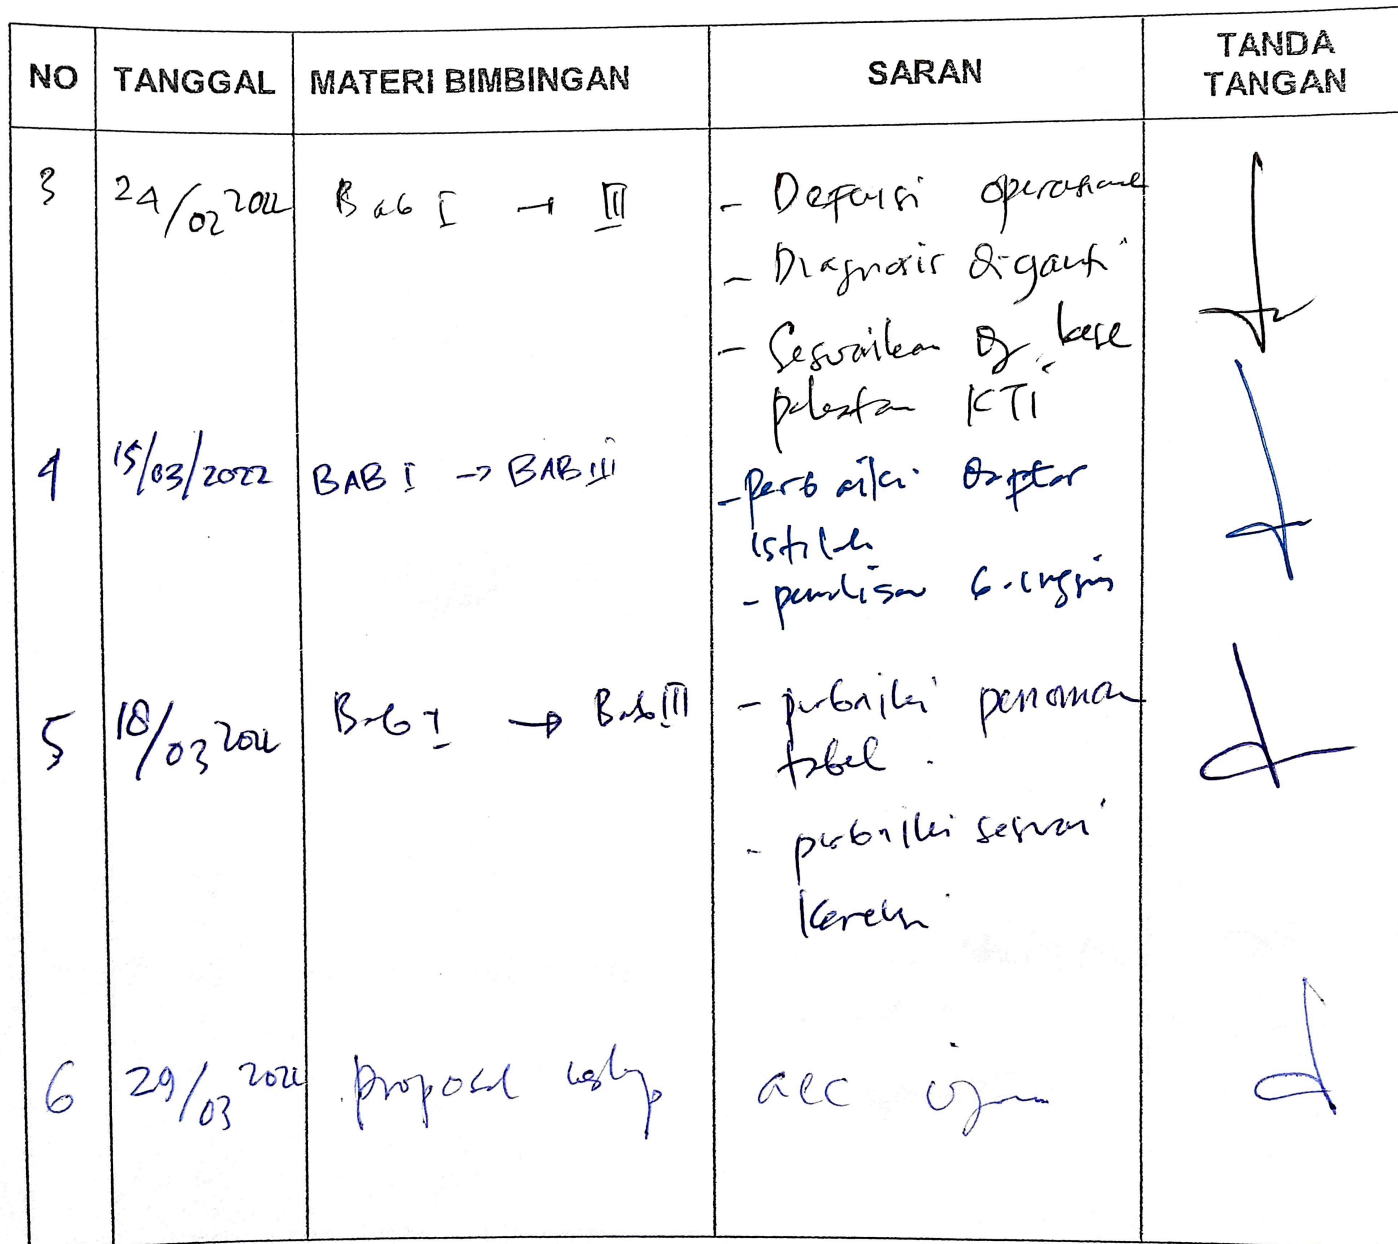 NO TANGGAL MATERI BIMBINGAN SARAN TANDA TANGAN
3 24/02 2022 Bab I → III - Definisi operasional
- Diagnosis diganti
- Sesuaikan dg
KTI
4 15/03/2022 BAB I -> BAB III - perbaiki daptar
istilah
- penulisan b. inggris
5 18/03 2022 Bab I → Bab III - perbaiki penomoran
tabel.
- perbaiki sesuai
koreksi
6 29/03 2022 proposal acc ujian